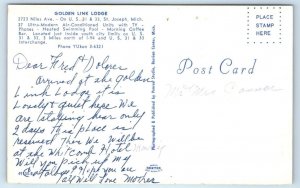 GOLDEN LINK LODGE
2723 Niles Ave. - On U. S. 31 & 33, St. Joseph, Mich.
27 Ultra-Modern Air-Conditioned Units with TV -
Phones - Heated Swimming Pool - Morning Coffee
Bar. Located just inside south city limits on U. S.
31 & 33, 2 Miles north of I-94 and U. S. 31 & 33
Exits.
Phone YUkon 3-6321
PLACE
STAMP
HERE
Post Card
Dear Fred & Dolores
arrived at the golden
Link Lodge it is
lovely & quiet here We
are staying hear only
2 days this place is
reserved then We will be
at the Whitcomb Hotel
Will you pick up my
Will Love Mother